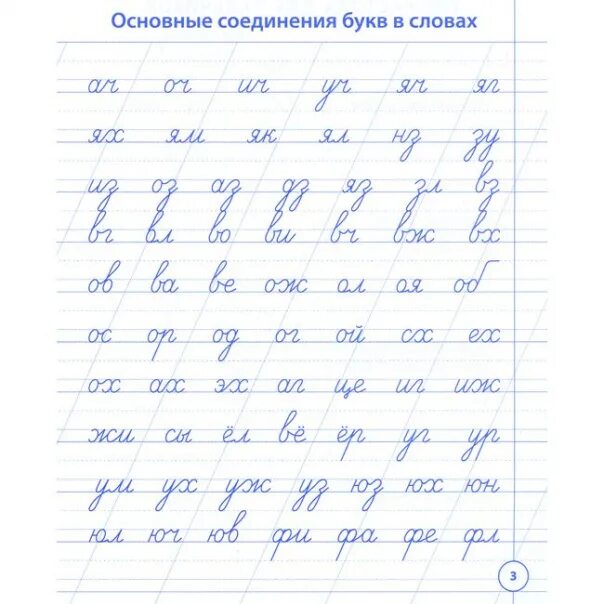 Основные соединения букв в словах
ач оч ич уч яч яг
ях ям як ял нз зу
из оз аз дз яз зл вз
вг вл во ви вч вж вх
ов ва ве ож ол оя об
ос ор од ог ой сх ех
ох ах эх аг ще иг иж
жи сы ёл вё ёр уг ур
ум ух уж уз юз юх юн
юл юч юв фи фа фе фл
3